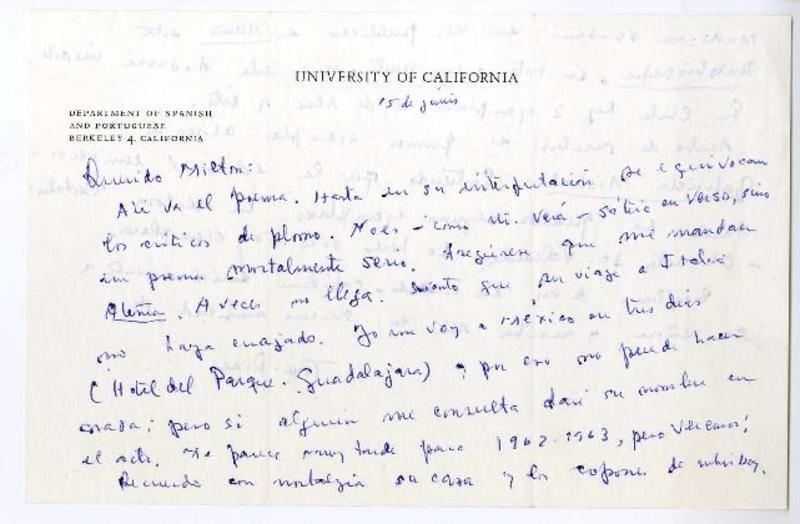 UNIVERSITY OF CALIFORNIA
15 de junio
DEPARTMENT OF SPANISH
AND PORTUGUESE
BERKELEY 4, CALIFORNIA
Querido Milton:
Ahí va el poema. Hasta en su interpretación se equivocan
los críticos de plomo. No es - como Ud. verá - sátira en verso, sino
un poema mortalmente serio. Asegúrese que me mandan
Atenea. A veces no llega. Siento que su viaje a Italia
no haya cuajado. Yo me voy a México en tres días
(Hotel del Parque. Guadalajara) y por eso no puedo hacer
nada; pero si alguien me consulta daré su nombre en
el acto. Me parece muy tarde para 1962-1963, pero veremos!
Recuerdo con nostalgia su casa y los copones de whiskey.